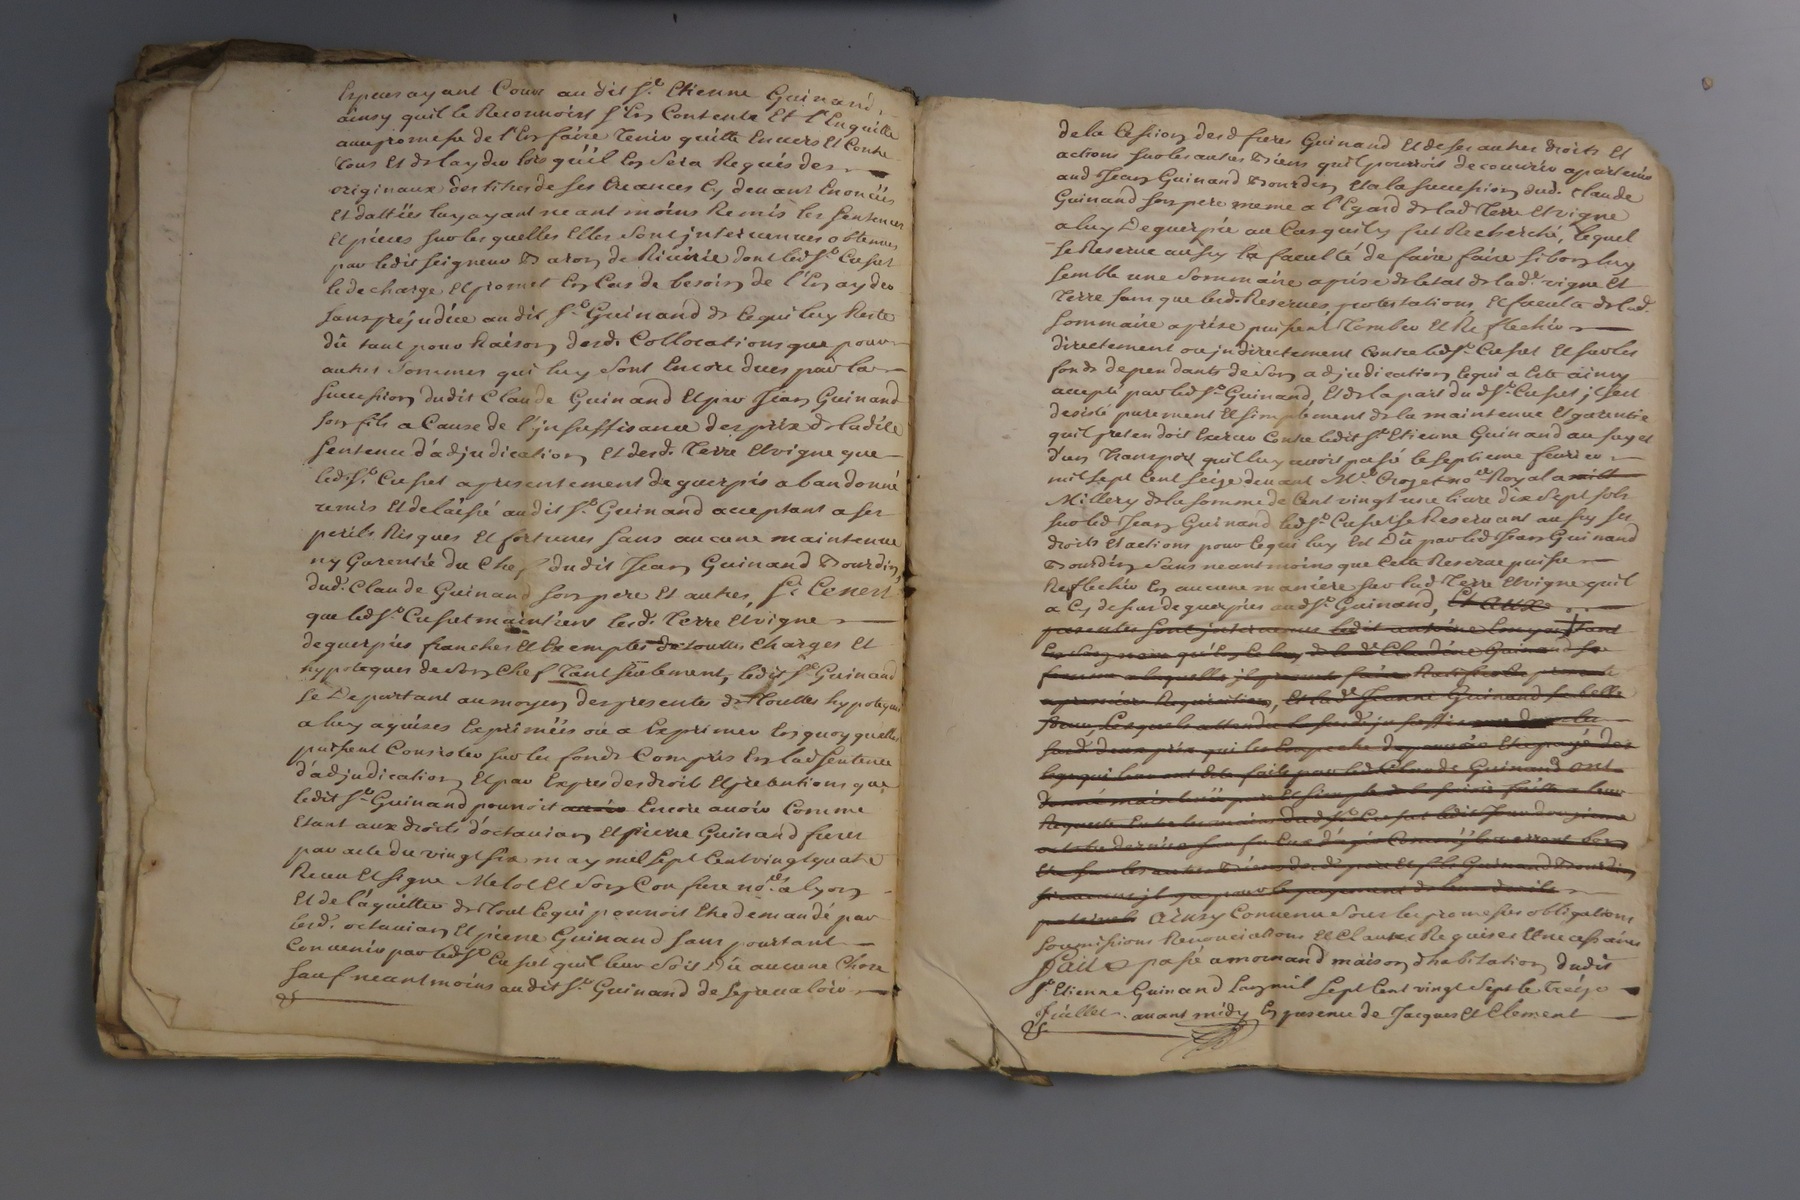 ayant Cours audit Sr. Etienne Guinand
ainsy quil le Reconnoist s'En Contente Et l'En quitte
avec promesse de l'En faire Tenir quitte Envers Et Contre
tous Et de layder lors qu'il En Sera Requis des
originaux des titres de ses Creances Cy devant Enoncées
Et dattées luy ayant neantmoins Remis les Sentences
Et pieces sur lesquelles Elles Sont jntervenues obtenues
par ledit Seigneur Baron de Riverie dont led. Sr. Cusset
le decharge Et promet En Cas de besoin de l'En ayder
sans prejudice audit Sr. Guinand de Ce qui luy Reste
dû tant pour Raison desd. Collocations que pour
autres Sommes qui luy Sont Encore dues par la
succession dudit Claude Guinand Et par Jean Guinand
son fils a Cause de l'jnsuffisance des prix de ladite
Sentence d'adjudication Et desd. Terre Et vigne que
led. Sr. Cusset a presentement deguerpis abandonné
remis Et delaissé audit Sr. Guinand acceptant a ses
perils Risques Et fortunes sans aucune maintenue
ny Garentie du Chef dudit Jean Guinand Bourdin,
dud. Claude Guinand son pere Et autres, Si Cenest
que led. Sr. Cusset maintient lesd. Terre Et vigne
deguerpies franches Et Exemptes de touttes Charges Et
hypoteques de son Chef Tant seulement, ledit Sr. Guinand
se Departant au moyen des presentes de Touttes hypoteques
a luy aquises Exprimées ou a Exprimer En quoy quelles
puissent Consister sur les fonds Compris En lad. Sentence
d'adjudication Et par Exprès des droits Et pretentions que
ledit Sr. Guinand pourroit avoir Encore avoir Comme
Etant aux droits d'octavian Et pierre Guinand freres
par acte du vingt six may mil Sept Cent vingt quatre
Receu Et signé Melot Et Son Confrere nores. a lyon
Et de l'aquitter de Tout Ce qui pourroit Etre demandé par
lesd. octavian Et pierre Guinand sans pourtant
Convenir par led. Sr. Cusset quil leur Soit Dû aucune Chose
sauf neantmoins audit Sr. Guinand de Se prevaloir
de la Cession desd. freres Guinand Et de ses autres droits Et
actions sur les autres Biens quil pourroit decouvrir apartenir
aud. Jean Guinand Bourdin Et a la succession dud. Claude
Guinand son pere meme a l'Egard de lad. Terre Et vigne
a luy Deguerpie au Cas quil y fut Recherché, lequel
se Reserve aussy la faculté de faire faire si bon luy
semble une Sommaire aprise de letat de lad. vigne Et
Terre sans que lesd. Reserves, protestations, Et faculté de lad.
sommaire aprise puissent Tomber Et Reflechir
directement ou jndirectement Contre led. Sr. Cusset Et sur les
fonds dependants de Son adjudication Ce qui a Eté ainsy
accepté par led. Sr. Guinand, Et de la part dud. Sr. Cusset jl sest
desisté purement Et simplement de la maintenue Et garentie
quil pretendoit Exercer Contre ledit Sr. Etienne Guinand au sujet
d'un Transport quil luy avoit passé le septieme fevrier
mil sept Cent seize devant Me. Croyet nore. Royal a mill
Millery de la somme de Cent vingt une livre dix Sept sols
sur led. Jean Guinand led. Sr. Cusset se Reservant aussy ses
droits Et actions pour Ce qui luy Est Dû par led. Jean Guinand
Bourdin Sans neantmoins que Cette Reserve puisse
Reflechir En aucune maniere sur lad. Terre Et vigne quil
a Cy dessus deguerpies aud. Sr. Guinand, Et aux
presentes sont jntervenus ledit antoine
En Son nom qu'En Celuy de lad. Claudine Guinand Sa
femme a laquelle jl promet faire Ratifier
a premiere Requisition, Et lad. Jeanne Guinand sa belle
soeur, Lesquels attendu
susd. deux prix qui les Empeche
legs qui leur ont été faits par led. Claude Guinand ont
donné mainlevée pure Et simple de la saisie faitte a leur
Requete Entre les mains dud. Sr. Cusset
octobre dernier
Et sur les autres Biens desd. pere Et fils Guinand Bourdin
si aucuns jl y a pour le payement de leurs droits
paternels Ainsy Convenu Sous les promesses obligations
soumissions Renonciations Et Clauses Requises Et necessaires
Fait & passé a mornand maison d'habitation dudit
Sr. Etienne Guinand Lan mil Sept Cent vingt Sept le Treize
Juillet avant midy En presence de Jacques Et Clement